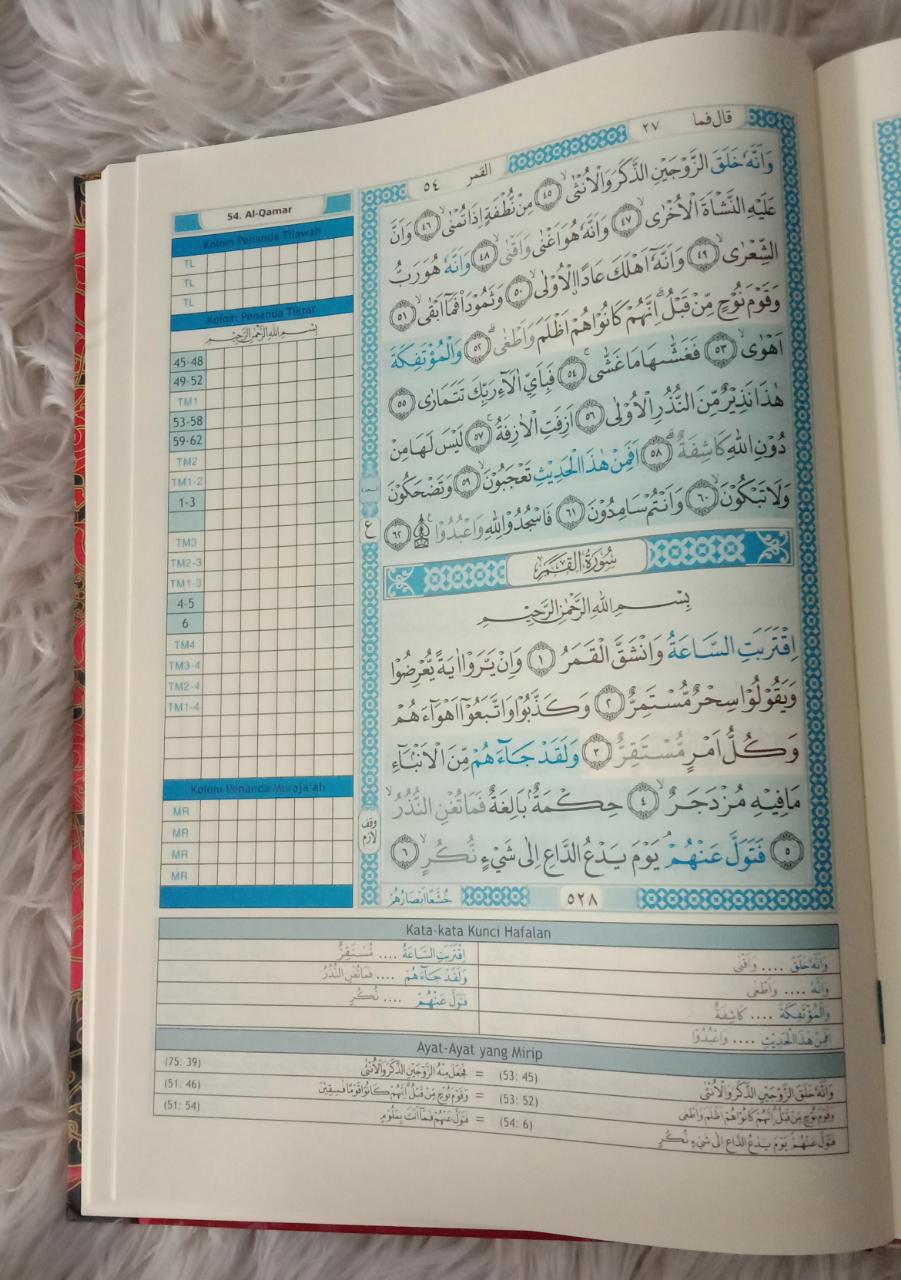 قال فما ٢٧
القمر ٥٤
وَاَنَّهٗ خَلَقَ الزَّوْجَيْنِ الذَّكَرَ وَالْاُنْثٰىۙ ٤٥ مِنْ نُّطْفَةٍ اِذَا تُمْنٰىۙ ٤٦ وَاَنَّ
عَلَيْهِ النَّشْاَةَ الْاُخْرٰىۙ ٤٧ وَاَنَّهٗ هُوَ اَغْنٰى وَاَقْنٰىۙ ٤٨ وَاَنَّهٗ هُوَ رَبُّ
الشِّعْرٰىۙ ٤٩ وَاَنَّهٗٓ اَهْلَكَ عَادًا ۨالْاُوْلٰىۙ ٥٠ وَثَمُوْدَا۟ فَمَآ اَبْقٰىۙ ٥١
وَقَوْمَ نُوْحٍ مِّنْ قَبْلُۗ اِنَّهُمْ كَانُوْا هُمْ اَظْلَمَ وَاَطْغٰىۗ ٥٢ وَالْمُؤْتَفِكَةَ
اَهْوٰىۙ ٥٣ فَغَشّٰىهَا مَا غَشّٰىۚ ٥٤ فَبِاَيِّ اٰلَاۤءِ رَبِّكَ تَتَمَارٰى ٥٥
هٰذَا نَذِيْرٌ مِّنَ النُّذُرِ الْاُوْلٰى ٥٦ اَزِفَتِ الْاٰزِفَةُۚ ٥٧ لَيْسَ لَهَا مِنْ
دُوْنِ اللّٰهِ كَاشِفَةٌۗ ٥٨ اَفَمِنْ هٰذَا الْحَدِيْثِ تَعْجَبُوْنَۙ ٥٩ وَتَضْحَكُوْنَ
وَلَا تَبْكُوْنَۙ ٦٠ وَاَنْتُمْ سَامِدُوْنَ ٦١ فَاسْجُدُوْا لِلّٰهِ وَاعْبُدُوْا ۩ ٦٢
السجدة
ع
سُوْرَةُ الْقَمَرِ
بِسْمِ اللّٰهِ الرَّحْمٰنِ الرَّحِيْمِ
اِقْتَرَبَتِ السَّاعَةُ وَانْشَقَّ الْقَمَرُ ١ وَاِنْ يَّرَوْا اٰيَةً يُّعْرِضُوْا
وَيَقُوْلُوْا سِحْرٌ مُّسْتَمِرٌّ ٢ وَكَذَّبُوْا وَاتَّبَعُوْٓا اَهْوَاۤءَهُمْ
وَكُلُّ اَمْرٍ مُّسْتَقِرٌّ ٣ وَلَقَدْ جَاۤءَهُمْ مِّنَ الْاَنْبَاۤءِ
مَا فِيْهِ مُزْدَجَرٌۙ ٤ حِكْمَةٌ ۢ بَالِغَةٌ فَمَا تُغْنِ النُّذُرُۙ
٥ فَتَوَلَّ عَنْهُمْ ۘ يَوْمَ يَدْعُ الدَّاعِ اِلٰى شَيْءٍ نُّكُرٍۙ ٦
وقف لازم
٥٢٨
خُشَّعًا اَبْصَارُهُمْ
54. Al-Qamar
Kolom Penanda Tilawah
TL
TL
TL
Kolom Penanda Tikrar
بِسْمِ اللّٰهِ الرَّحْمٰنِ الرَّحِيْمِ
45-48
49-52
TM1
53-58
59-62
TM2
TM1-2
1-3
TM3
TM2-3
TM1-3
4-5
6
TM4
TM3-4
TM2-4
TM1-4
Kolom Penanda Muraja'ah
MR
MR
MR
MR
Kata-kata Kunci Hafalan
وَاَنَّهٗ خَلَقَ .... وَاَقْنٰى
وَاَنَّهٗ .... وَاَطْغٰى
وَالْمُؤْتَفِكَةَ .... كَاشِفَةٌ
اَفَمِنْ هٰذَا الْحَدِيْثِ .... وَاعْبُدُوْا
اِقْتَرَبَتِ السَّاعَةُ .... مُّسْتَقِرٌّ
وَلَقَدْ جَاۤءَهُمْ .... فَمَا تُغْنِ النُّذُرُ
فَتَوَلَّ عَنْهُمْ .... نُّكُرٍ
Ayat-Ayat yang Mirip
وَاَنَّهٗ خَلَقَ الزَّوْجَيْنِ الذَّكَرَ وَالْاُنْثٰى (53: 45) = فَجَعَلَ مِنْهُ الزَّوْجَيْنِ الذَّكَرَ وَالْاُنْثٰى (75: 39)
وَقَوْمَ نُوْحٍ مِّنْ قَبْلُ اِنَّهُمْ كَانُوْا هُمْ اَظْلَمَ وَاَطْغٰى (53: 52) = وَقَوْمَ نُوْحٍ مِّنْ قَبْلُ اِنَّهُمْ كَانُوْا قَوْمًا فٰسِقِيْنَ (51: 46)
فَتَوَلَّ عَنْهُمْ يَوْمَ يَدْعُ الدَّاعِ اِلٰى شَيْءٍ نُّكُرٍ (54: 6) = فَتَوَلَّ عَنْهُمْ فَمَآ اَنْتَ بِمَلُوْمٍ (51: 54)